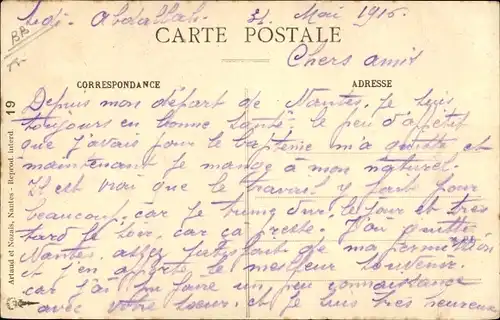 Sidi-Abdallah. 31 Mai 1916.
CARTE POSTALE
Chers amis
CORRESPONDANCE
ADRESSE
Depuis mon départ de Nantes, je suis
toujours en bonne santé. le peu d'appétit
que j'avais pour le baptême m'a quitté et
maintenant je mange à mon naturel.
Il est vrai que le travail y fait pour
beaucoup, car je turine dur, le jour et très
tard le soir, car ça presse. J'ai quitté
Nantes, assez satisfait de ma permission
et j'en apporte le meilleur souvenir.
car j'ai pu faire un peu connaissance
avec votre sœur, et je suis très heureux
Artaud et Nozais, Nantes - Reprod. interd. 19